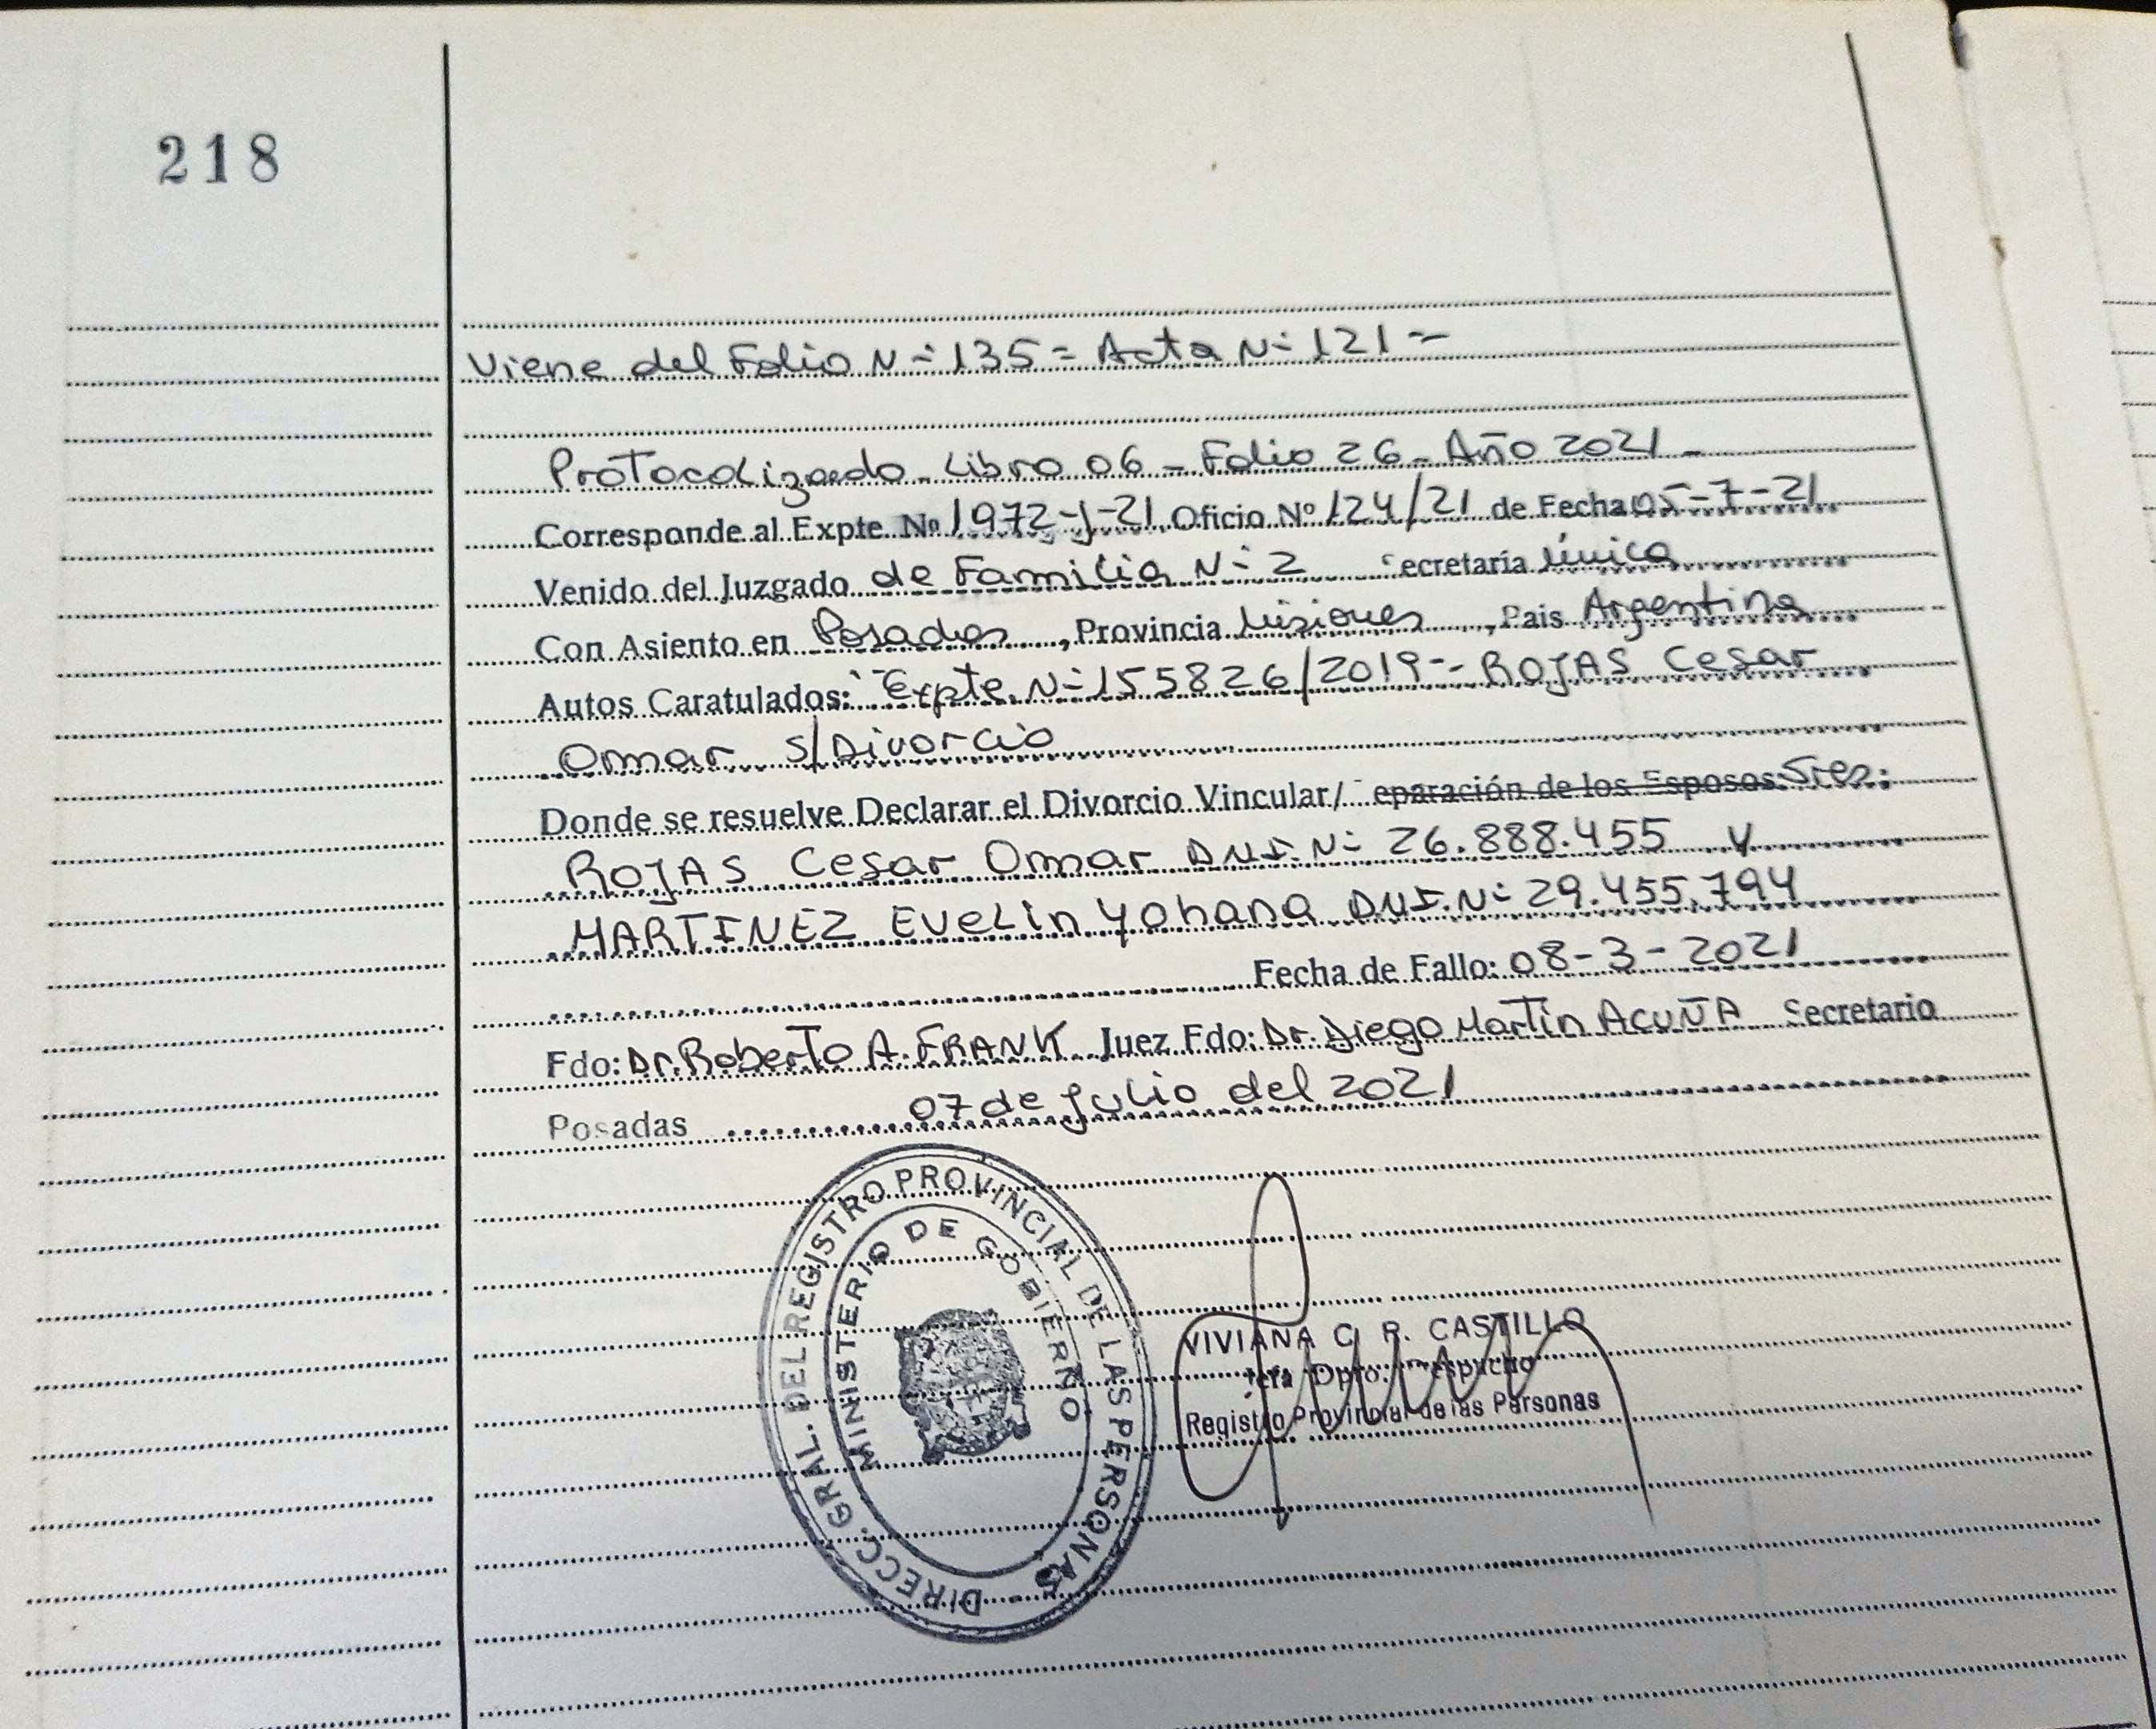 218
Viene del Folio N= 135= Acta N= 121=
Protocolizado - Libro 06 - Folio 26 - Año 2021 -
Corresponde al Expte. Nº 1972-J-21, Oficio Nº 124/21 de Fecha 05-7-21
Venido del Juzgado de Familia N= 2 Secretaría Única
Con Asiento en Posadas, Provincia Misiones, Pais Argentina
Autos Caratulados: "Expte. N= 155826/2019 - ROJAS Cesar
Omar S/Divorcio
Donde se resuelve Declarar el Divorcio Vincular/ eparación de los Esposos: Sres:
ROJAS Cesar Omar DNI. N= 26.888.455 y
MARTINEZ Evelin Yohana DNI. N= 29.455.794
Fecha de Fallo: 08-3-2021
Fdo: Dr. Roberto A. FRANK Juez Fdo: Dr. Diego Martin ACUÑA Secretario
Posadas 07 de Julio del 2021
DIRECC. GRAL. DEL REGISTRO PROVINCIAL DE LAS PERSONAS
MINISTERIO DE GOBIERNO
VIVIANA R. CASTILLO
Jefa Dpto. Despacho
Registro Provincial de las Personas